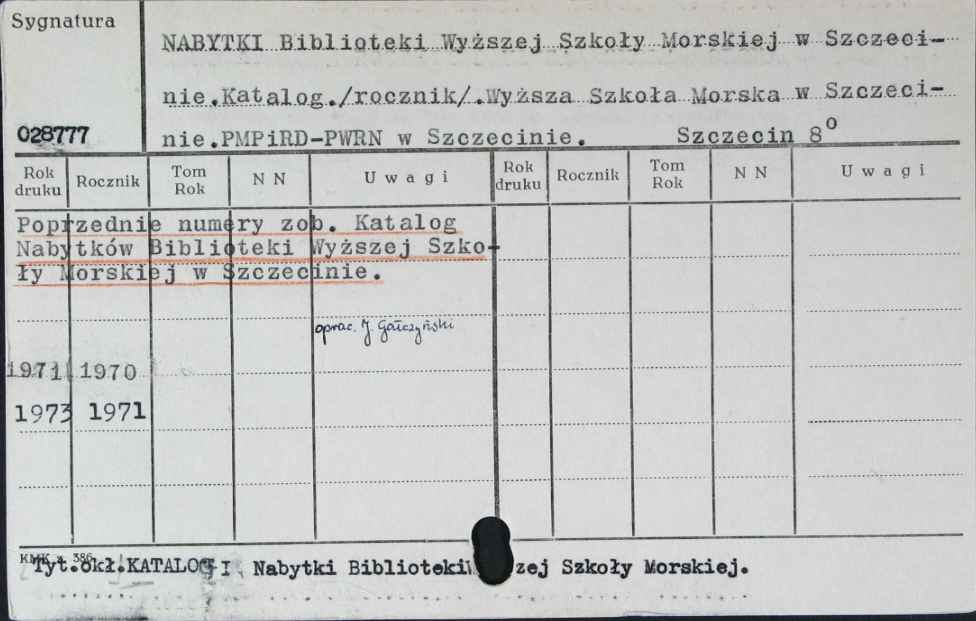 Sygnatura
NABYTKI Biblioteki Wyższej Szkoły Morskiej w Szczeci-
nie.Katalog./rocznik/.Wyższa Szkoła Morska w Szczeci-
028777
nie.PMPiRD-PWRN w Szczecinie. Szczecin 8°
Rok druku Rocznik Tom Rok N N U w a g i Rok druku Rocznik Tom Rok N N U w a g i
Poprzednie numery zob. Katalog
Nabytków Biblioteki Wyższej Szko-
ły Morskiej w Szczecinie.
oprac. J. Gałczyński
1971 1970
1973 1971
KMK z. 386
Tyt.okł.KATALOG I Nabytki Biblioteki W zej Szkoły Morskiej.